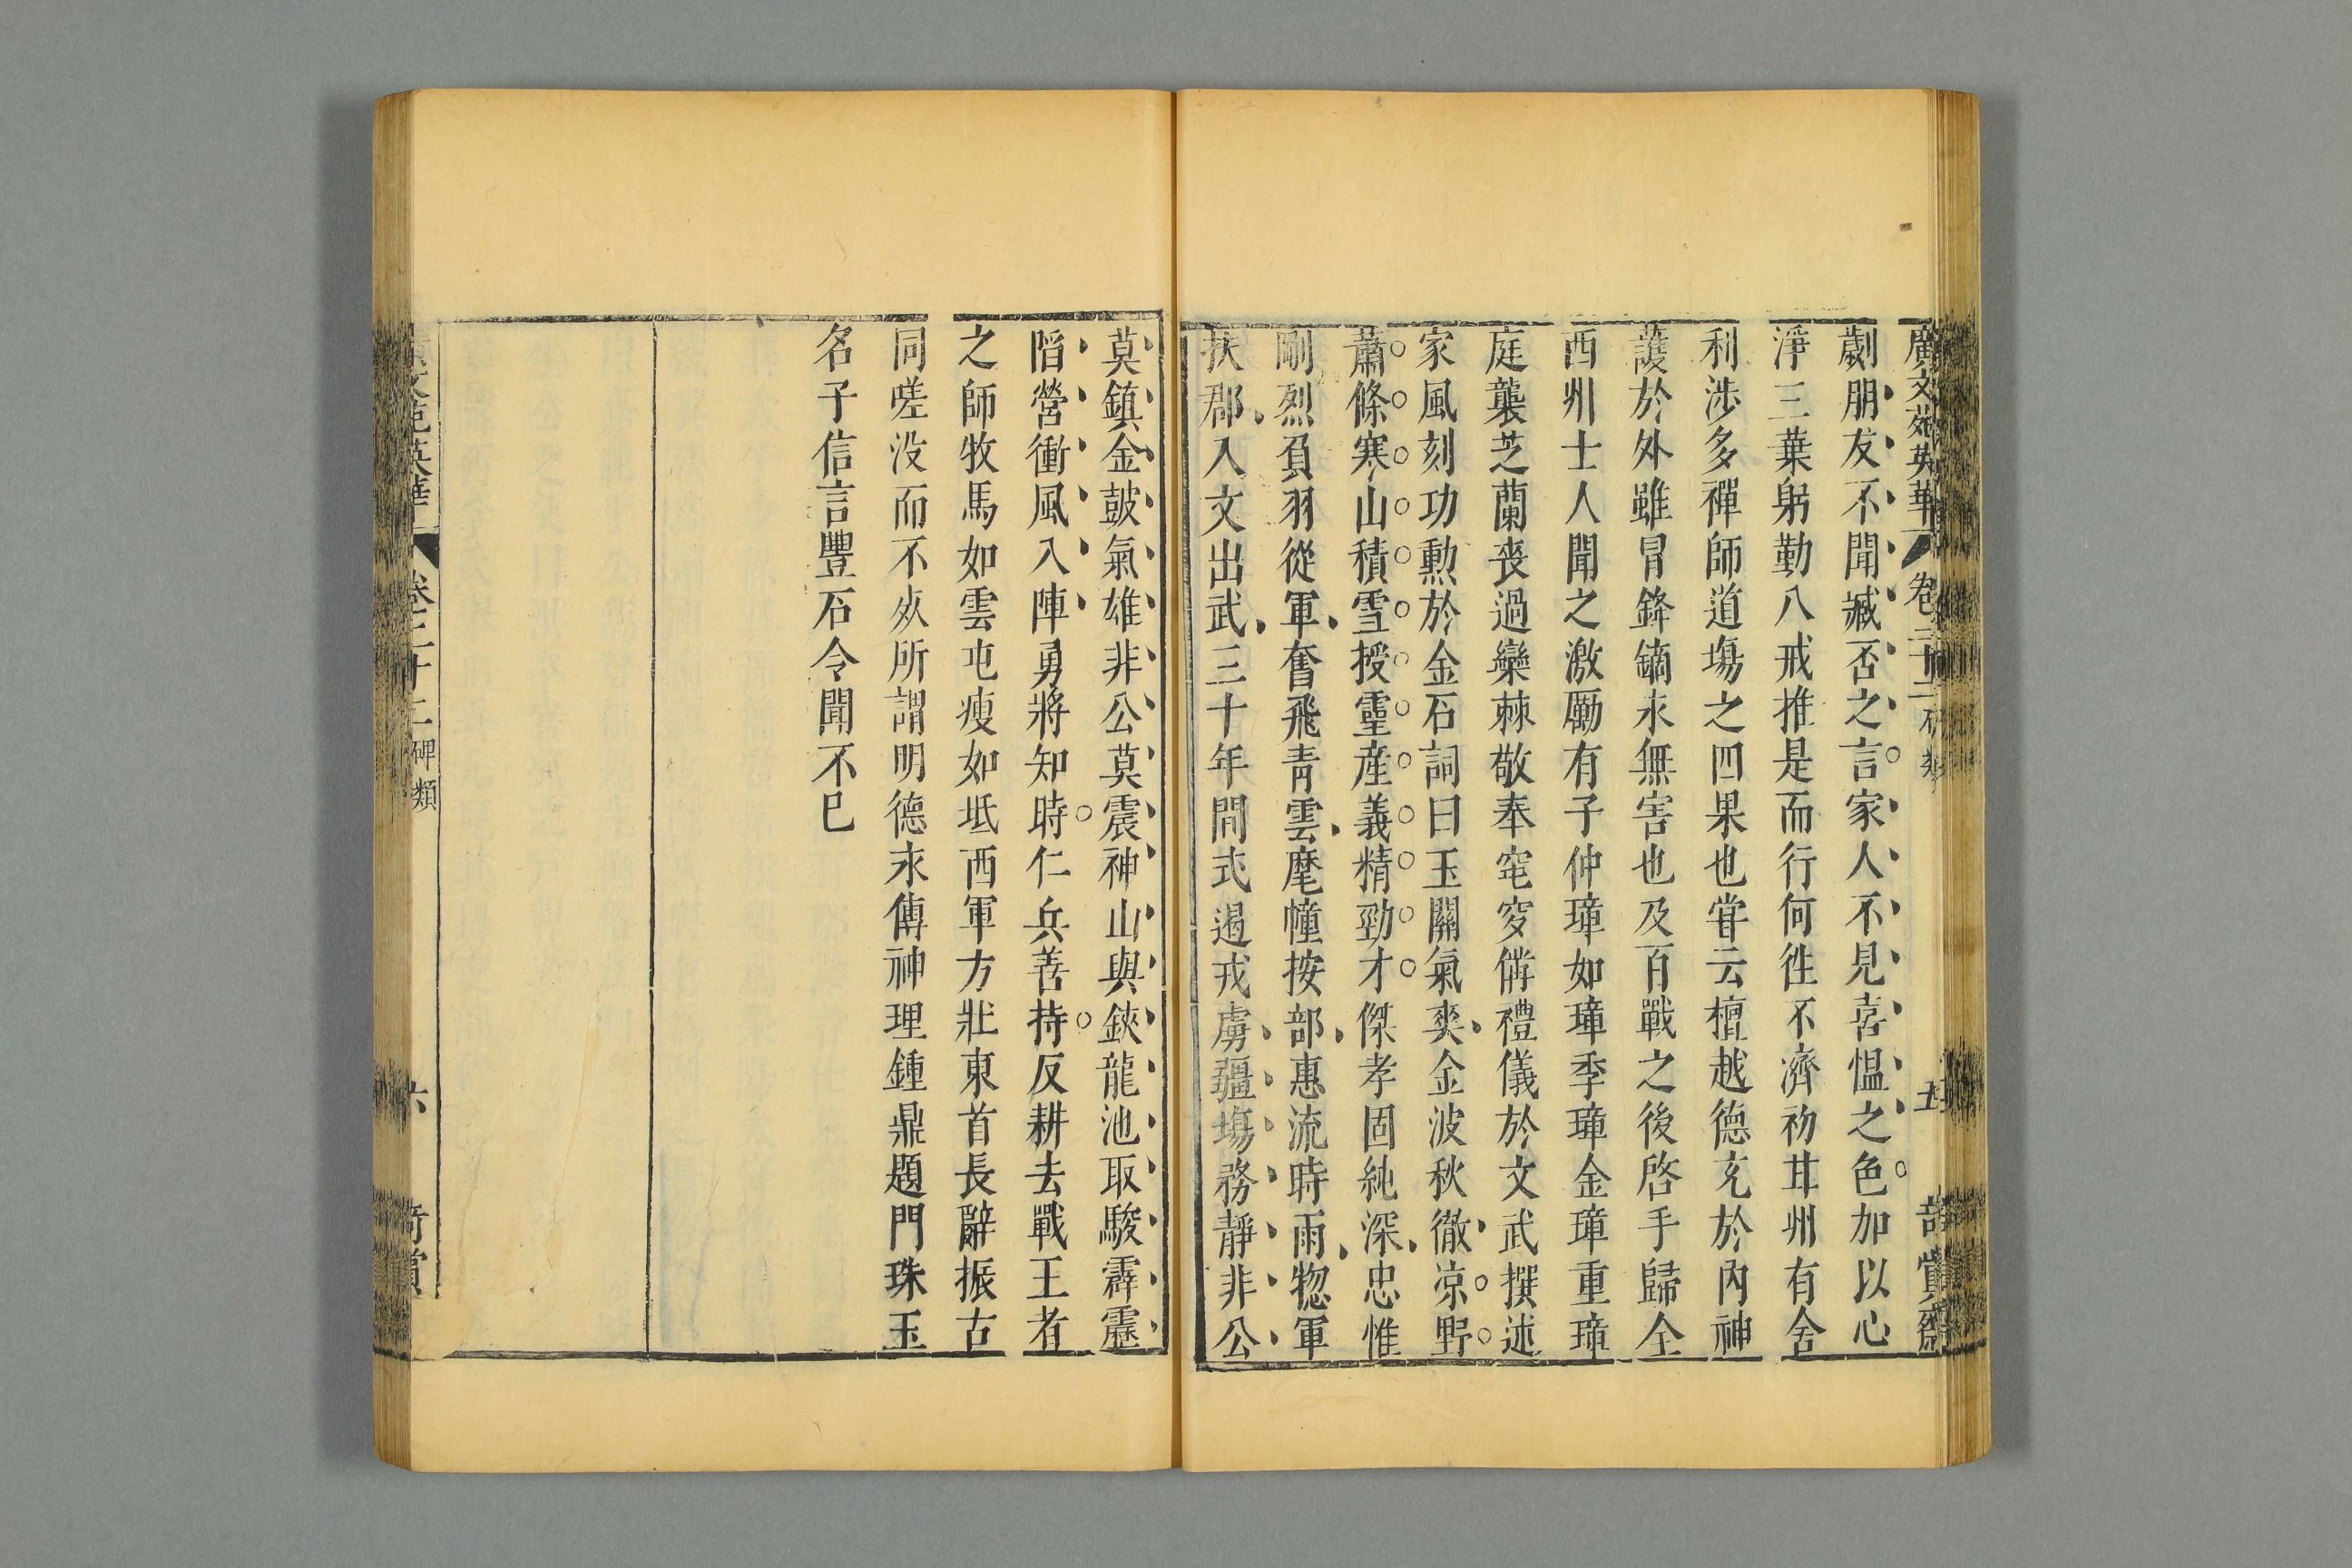 廣文苑英華 卷二十二 碑類 五 奇賞齋
劌朋友不聞臧否之言家人不見喜慍之色加以心
淨三葉躬勤八戒推是而行何徃不濟初廿州有舍
利涉多禪師道塲之四果也甞云檀越德充於內神
護於外雖冒鋒鏑永無害也及百戰之後啓手歸全
西州士人聞之激厲有子仲璋如璋季璋金璋重璋
庭襲芝蘭喪過欒棘敬奉窀穸俻禮儀於文武撰述
家風刻功勲於金石詞曰玉關氣爽金波秋徹凉野
蕭條寒山積雪授靈産義精勁才傑孝固純深忠惟
剛烈負羽從軍奮飛青雲麾幢按部惠流時雨惣軍
扶郡入文出武三十年間式遏戎虜疆塲務靜非公
莫鎮金鼓氣雄非公莫震神山與鋏龍池取駿霹靂
陷營衝風入陣勇將知時仁兵善持反耕去戰王者
之師牧馬如雲屯瘦如坻西軍方壯東首長辭振古
同嗟没而不朽所謂明德永傳神理鍾鼎題門珠玉
名子信言豐石令聞不巳
廣文苑英華 卷二十二 碑類 六 奇賞